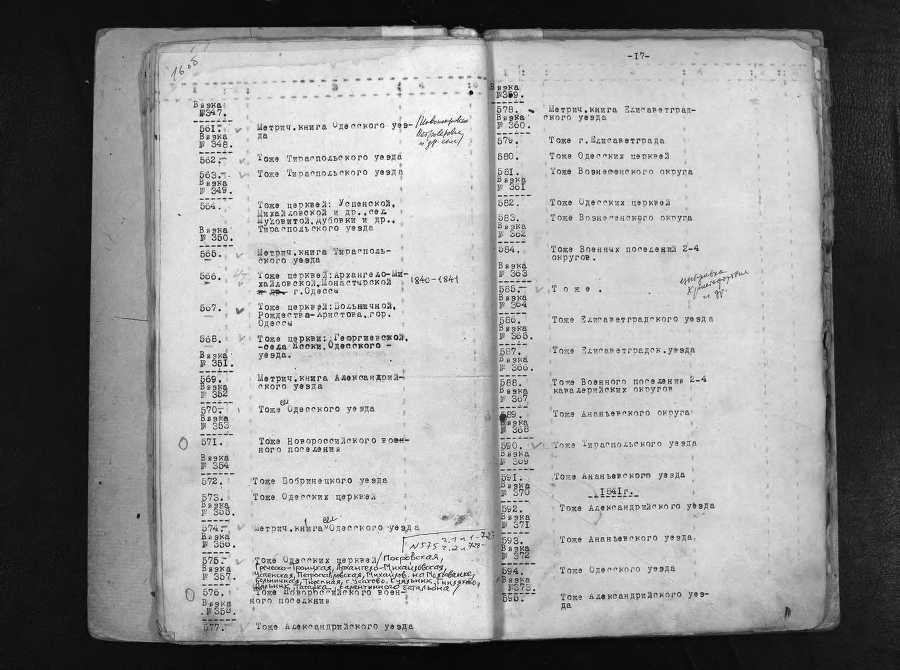 Вязка
№347.
561. Метрич.книга Одесского уез-
Вязка да
№ 348.
562. Тоже Тираспольского уезда
563. Тоже Тираспольского уезда
Вязка
№ 349.
564. Тоже церквей: Успенской,
Михайловской и др.,сел
Дубовки и др.,
Вязка Тираспольского уезда
№ 350.
565. Метрич.книга Тирасполь-
ского уезда
566. Тоже церквей:Архангело-Ми- 1840-1841
хайловской,Монастырской
г.Одессы
567. Тоже церквей:Больничной,
Рождества-Христова,гор.
Одессы
568. Тоже церкви: Георгиевской,
-села Одесского -
Вязка уезда.
№ 351.
569. Метрич.книга Александрий-
Вязка ского уезда
№ 352
570. Тоже Одесского уезда
Вязка
№ 353
571. Тоже Новороссийского воен-
Вязка ного поселения
№ 354
572. Тоже Бобринецкого уезда
573. Тоже Одесских церквей
Вязка
№ 355.
574. Метрич.книга Одесского уезда
Вязка
№ 356.
N575
575. Тоже Одесских церквей/Покровская,
Вязка Греческо-Троицкая, Архангело-Михайловская,
№ 357. Успенская, Петропавловская, Михайлов. на Молдаванке,
576. Тоже Новороссийского воен-
Вязка ного поселения
№ 358.
577. Тоже Александрийского уезда
-17-
Вязка
№359.
578. Метрич.книга Елисаветград-
Вязка ского уезда
№ 360.
579. Тоже г.Елисаветграда
580. Тоже Одесских церквей
581. Тоже Вознесенского округа
Вязка
№ 361
582. Тоже Одесских церквей
583. Тоже Вознесенского округа
Вязка
№ 362
584. Тоже Военных поселений 2-4
округов.
Вязка
№ 363
585. Т о ж е .
Вязка
№ 364
586. Тоже Елисаветградского уезда
Вязка
№ 365.
587. Тоже Елисаветградск.уезда
Вязка
№ 366.
588. Тоже Военного поселения 2-4
Вязка кавалерийских округов
№ 367
589. Тоже Ананьевского округа
Вязка
№ 368
590. Тоже Тираспольского уезда
Вязка
№ 369
591. Тоже Ананьевского уезда
Вязка
№ 370 1841г.
592. Тоже Александрийского уезда
Вязка
№ 371
593. Тоже Ананьевского уезда.
Вязка
№ 372
594. Тоже Одесского уезда
Вязка
№373.
595. Тоже Александрийского уез-
да